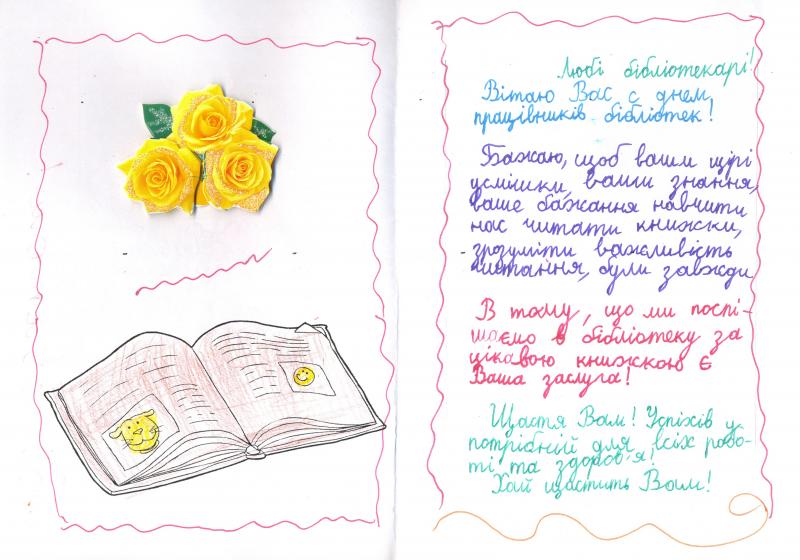 Любі бібліотекарі!
Вітаю Вас с днем
працівників бібліотек!
Бажаю, щоб ваши щірі
усмішки, ваши знання,
ваше бажання навчити
нас читати книжки,
зрозуміти важливість
читання, були завжди
В тому, що ми поспі-
шаємо в бібліотеку за
цікавою книжкою є
Ваша заслуга!
Щастя Вам! Успіхів у
потрібній для всіх робо-
ті та здоров'я!
Хай щастить Вам!